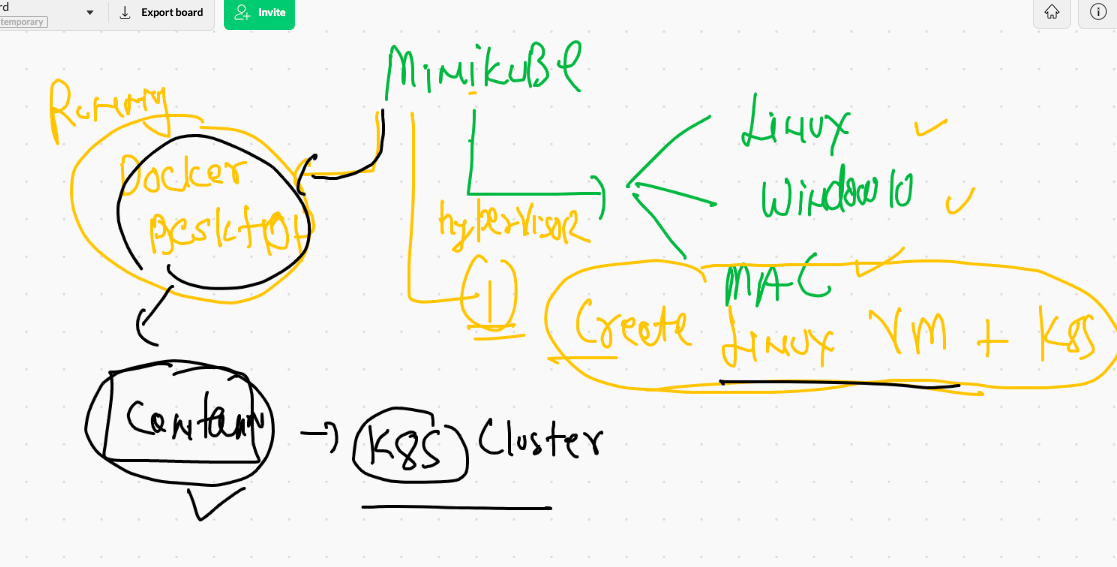 rd
temporary
Export board
Invite
MiniKuBe
Running
Docker
Desktop
Linux
Window10
MAC
hypervisor
1
Create Linux VM + K8S
Contain
K8S Cluster